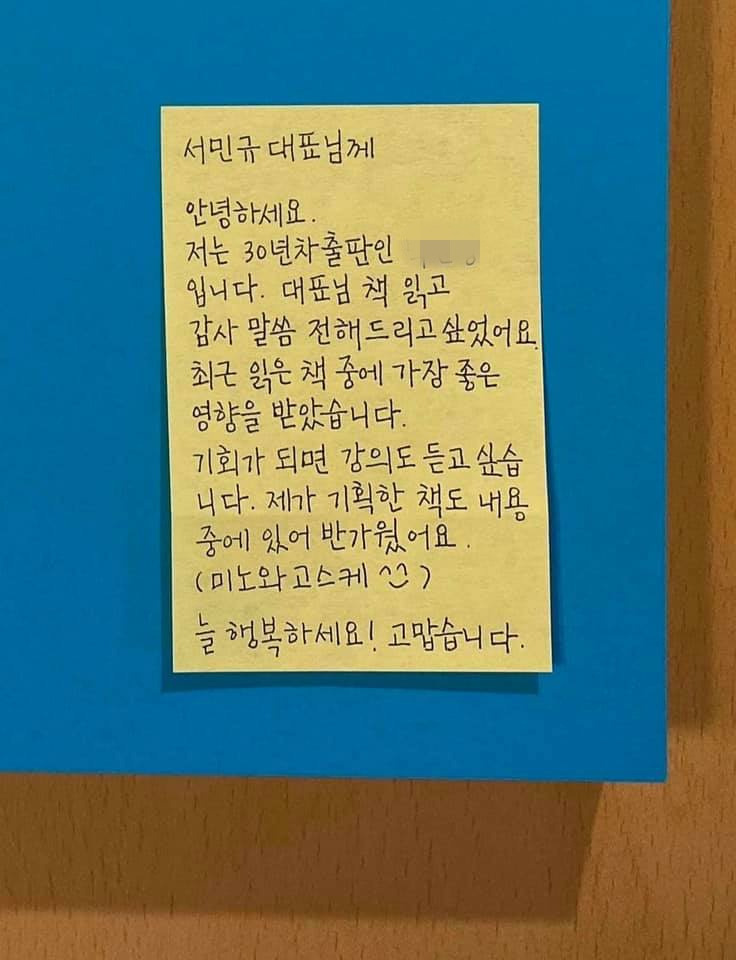 서민규 대표님께
안녕하세요.
저는 30년차 출판인
입니다. 대표님 책 읽고
감사 말씀 전해드리고 싶었어요.
최근 읽은 책 중에 가장 좋은
영향을 받았습니다.
기회가 되면 강의도 듣고 싶습
니다. 제가 기획한 책도 내용
중에 있어 반가웠어요.
(미노와 고스케 ^^)
늘 행복하세요! 고맙습니다.